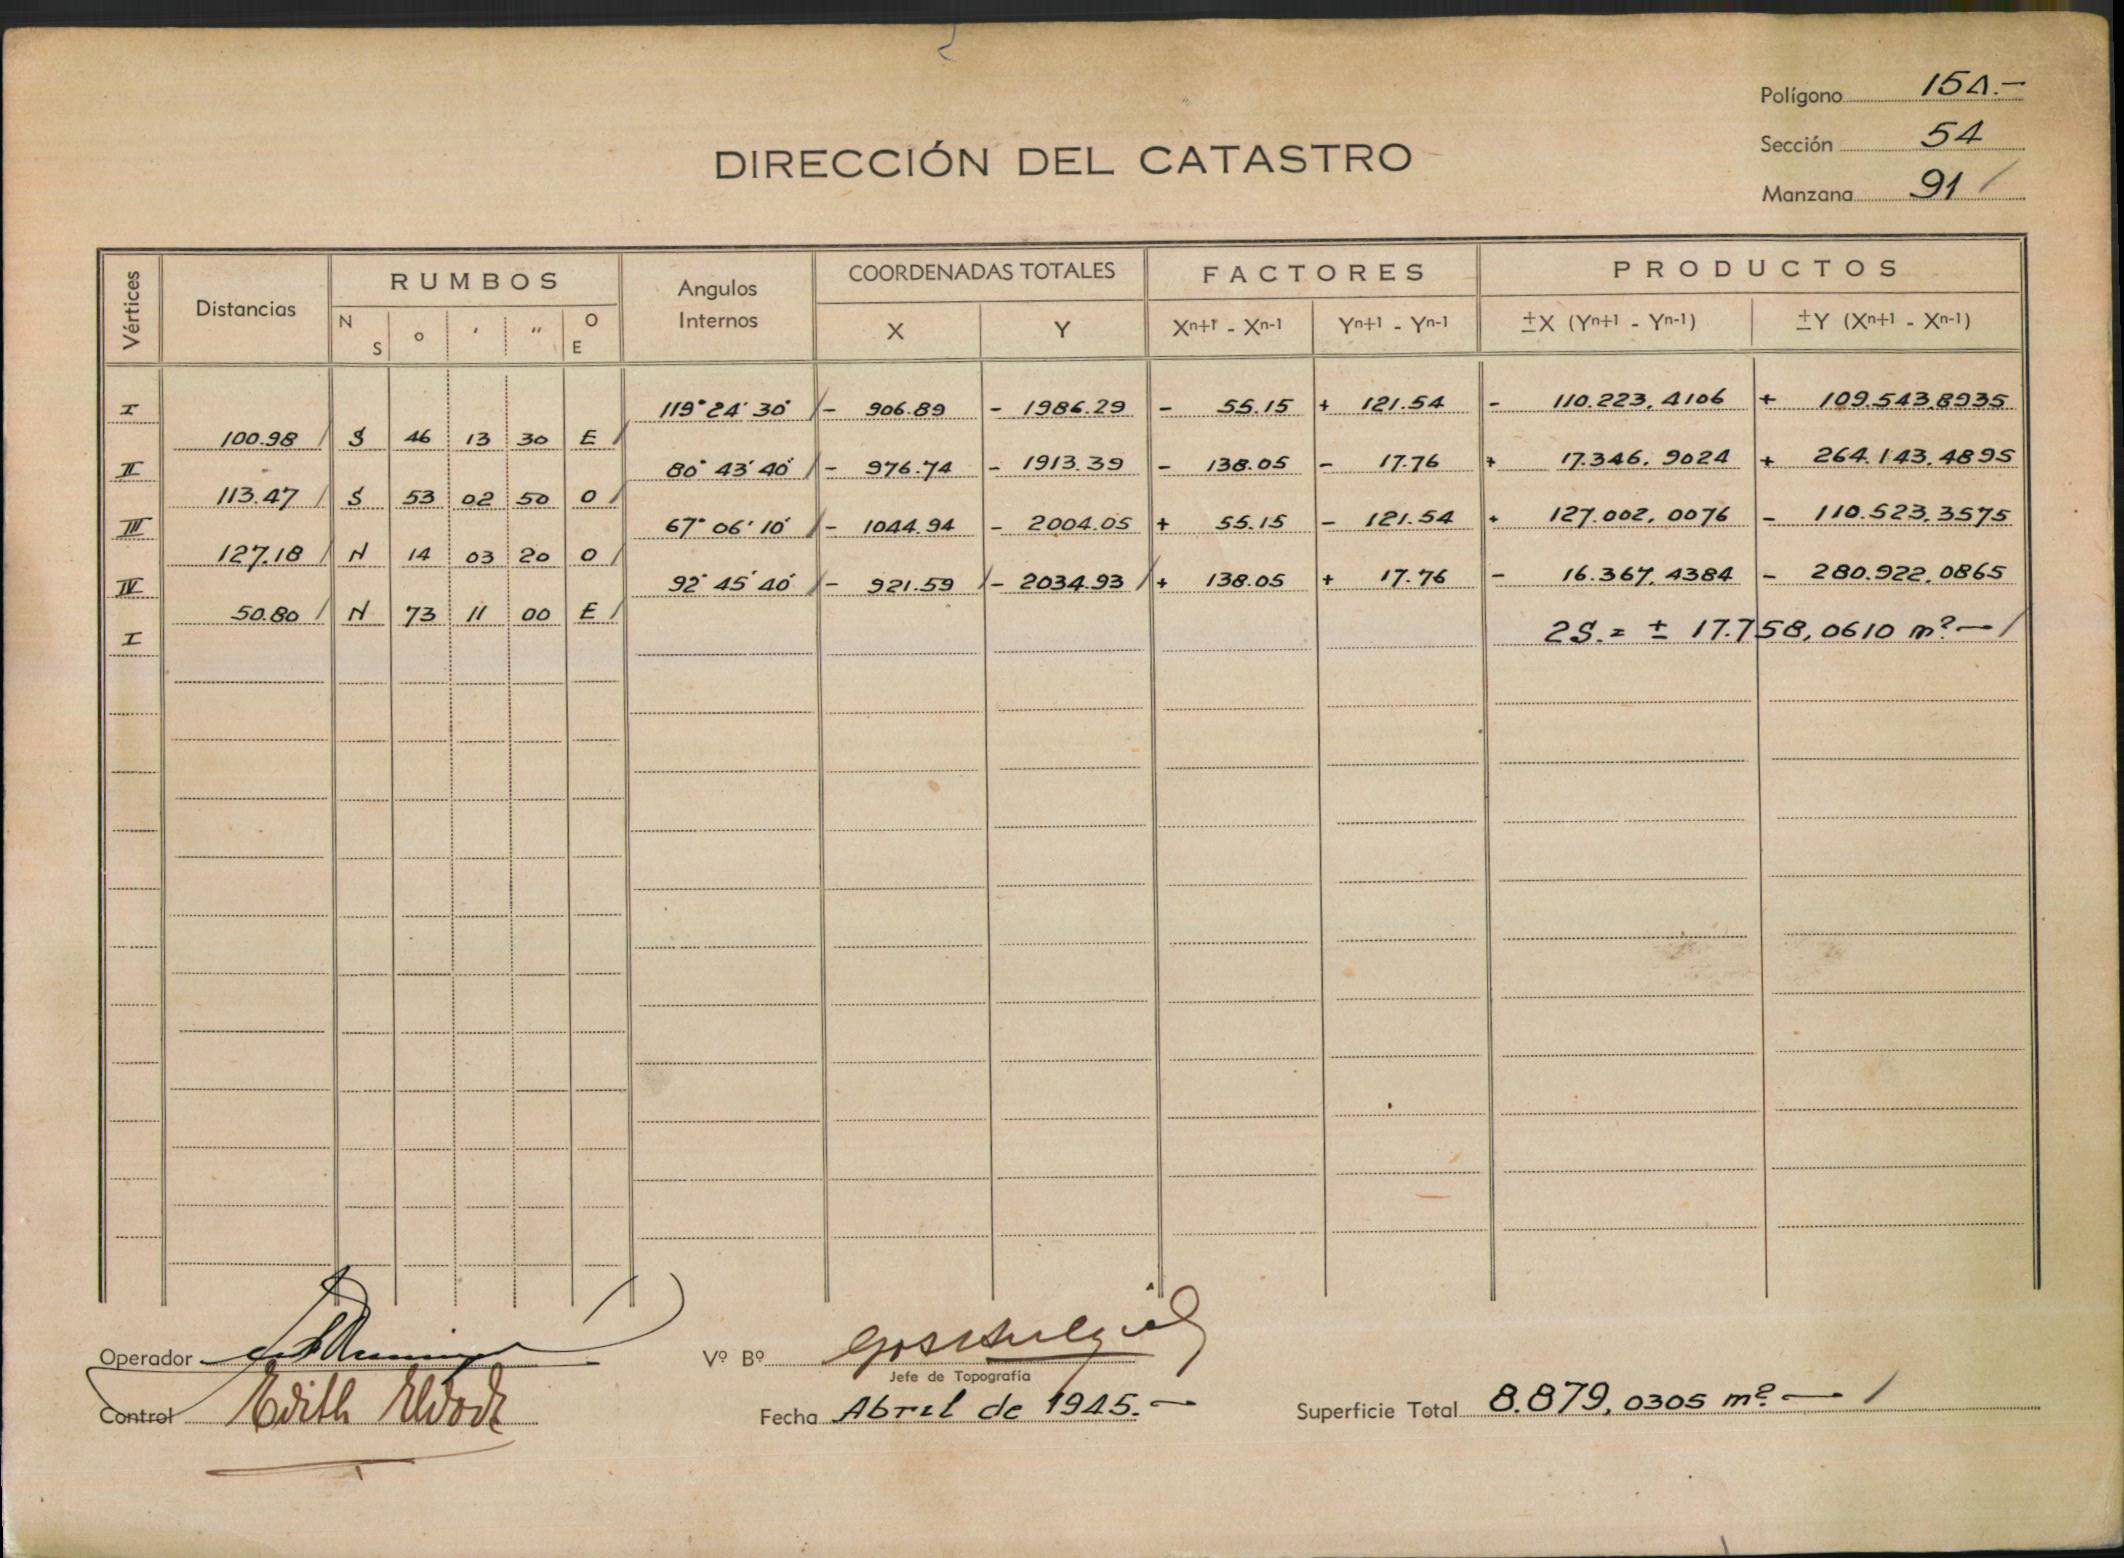 Polígono 154.-
Sección 54
Manzana 91 /
DIRECCIÓN DEL CATASTRO
Vértices Distancias RUMBOS Angulos Internos COORDENADAS TOTALES FACTORES PRODUCTOS
N S ° ' " O E X Y Xn+1 - Xn-1 Yn+1 - Yn-1 ±X (Yn+1 - Yn-1) ±Y (Xn+1 - Xn-1)
I 119° 24' 30" / - 906.89 - 1986.29 - 55.15 + 121.54 - 110.223,4106 + 109.543,8935
100.98 / S 46 13 30 E /
II 80° 43' 40" / - 976.74 - 1913.39 - 138.05 - 17.76 + 17.346,9024 + 264.143,4895
113.47 / S 53 02 50 O /
III 67° 06' 10" / - 1044.94 - 2004.05 + 55.15 - 121.54 + 127.002,0076 - 110.523,3575
127.18 / N 14 03 20 O /
IV 92° 45' 40" / - 921.59 / - 2034.93 / + 138.05 + 17.76 - 16.367,4384 - 280.922,0865
50.80 / N 73 11 00 E /
I 2S. = ± 17.758,0610 m² — /
Operador
Vº Bº
Jefe de Topografía
Control Edith
Fecha Abril de 1945.-
Superficie Total 8.879,0305 m² — /